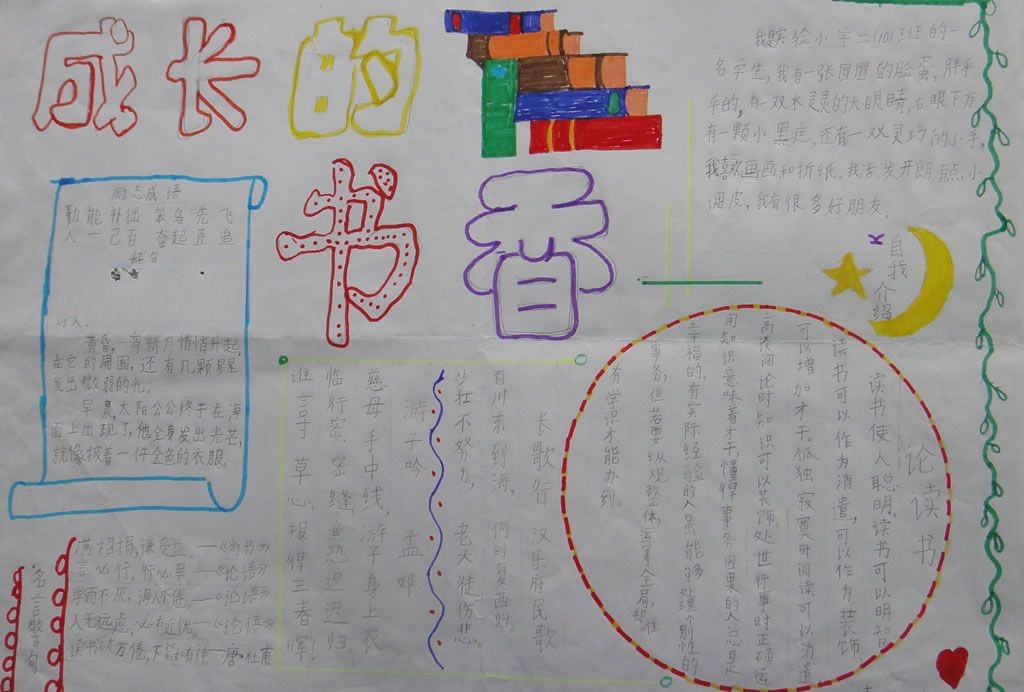 成长的
书香
励志成语
勤能补拙 笨鸟先飞
人一己百 奋起直追
好句
黄昏,一弯新月悄悄升起,
在它的周围,还有几颗星星
发出微弱的光。
早晨,太阳公公终于在海
面上出现了,他全身发出光芒,
就像披着一件金色的衣服。
名言警句
满招损,谦受益。——《尚书》
言必行,行必果。——《论语》
学而不厌,诲人不倦。——《论语》
人无远虑,必有近忧。——《论语》
读书破万卷,下笔如有神——唐·杜甫
我是实验小学二(10)班的一
名学生,我有一张圆圆的脸蛋,胖乎
乎的,有一双水灵灵的大眼睛,右眼下方
有一颗小黑痣,还有一双灵巧的小手,
我喜欢画画和折纸。我活发开朗,有点小
调皮,我有很多好朋友。
自我介绍
长歌行 汉乐府民歌
百川东到海,何时复西归。
少壮不努力,老大徒伤悲。
游子吟 孟郊
慈母手中线,游子身上衣。
临行密密缝,意恐迟迟归。
谁言寸草心,报得三春晖!
论读书
读书使人聪明,读书可以明智
读书可以作为消遣,可以作为装饰,
可以增加才干。孤独寂寞时阅读可以消遣,
高谈阔论时知识可以装饰,处世行事时正确运
用知识意味着才干,懂得事务因果的人总是
幸福的,有实际经验的人虽能够处理个别性的
事务,但若要纵观整体,运筹全局,却唯
有学识才能办到。